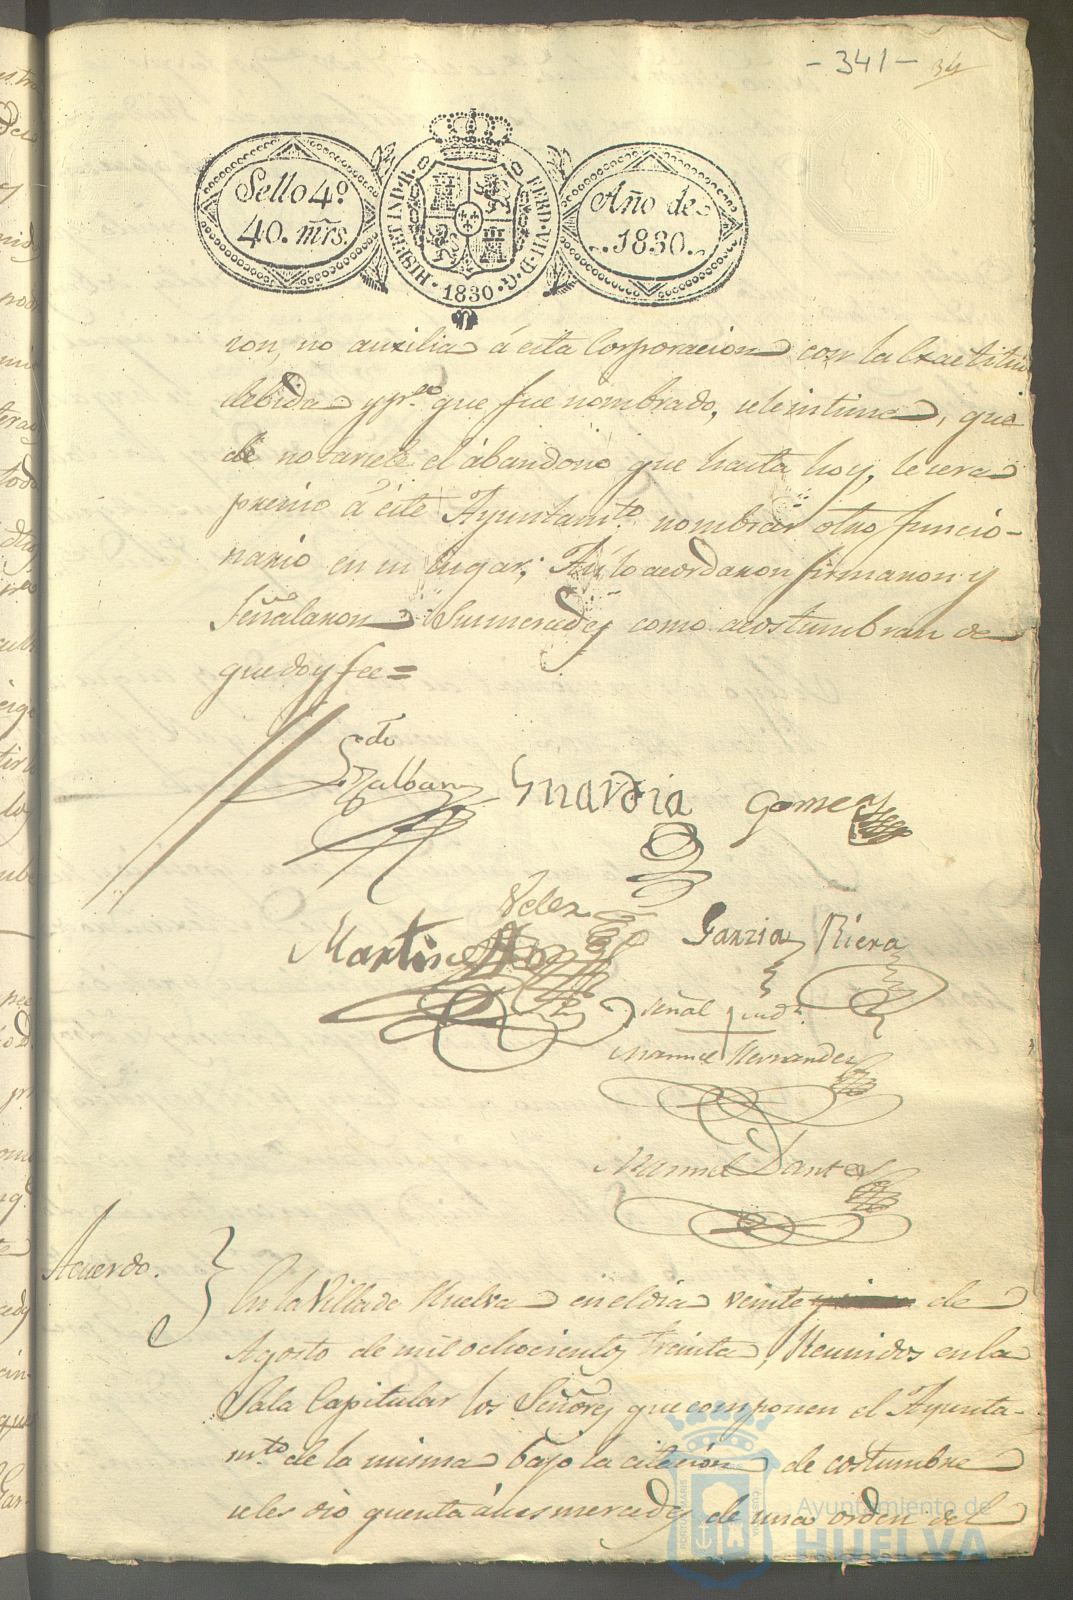 - 341 -
Sello 4º
40. mrs.
HISP. ET IND. R. FERD. VII. D. G. 1830
Año de
1830.
con, no auxilia á esta Corporacion con la Exactitud
debida y pª que fue nombrado, se le intima, que
de notarsele el ábandono que hasta hoy, le sera
presiso á éste Ayuntamto. nombrar otro funcio-
nario en su lugar; Asi lo acordaron firmaron y
Señalaron Sus mercedes como acostumbran de
que doy fee =
Guardia Gomez
Velez
Martinez Garzia Riera
señal
Manuel Hernandez
Manuel
Acuerdo.
En la Villa de Huelva en el dia veinte de
Agosto de mil ochocientos treinta, Reunidos en la
Sala Capitular los Señores que componen el Ayunta-
mto. de la misma bajo la citacion de costumbre
se les dio quenta á sus mercedes de una orden del
Ayuntamiento de
HUELVA